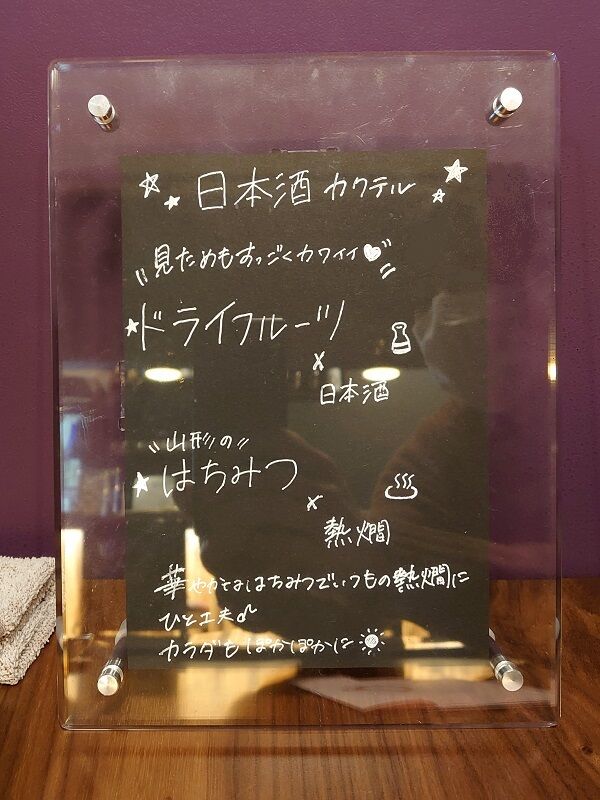 日本酒カクテル
見ためもすっごくカワイイ
ドライフルーツ
×
日本酒
山形の
はちみつ
×
熱燗
華やかなはちみつでいつもの熱燗に
ひと工夫
カラダもぽかぽかに